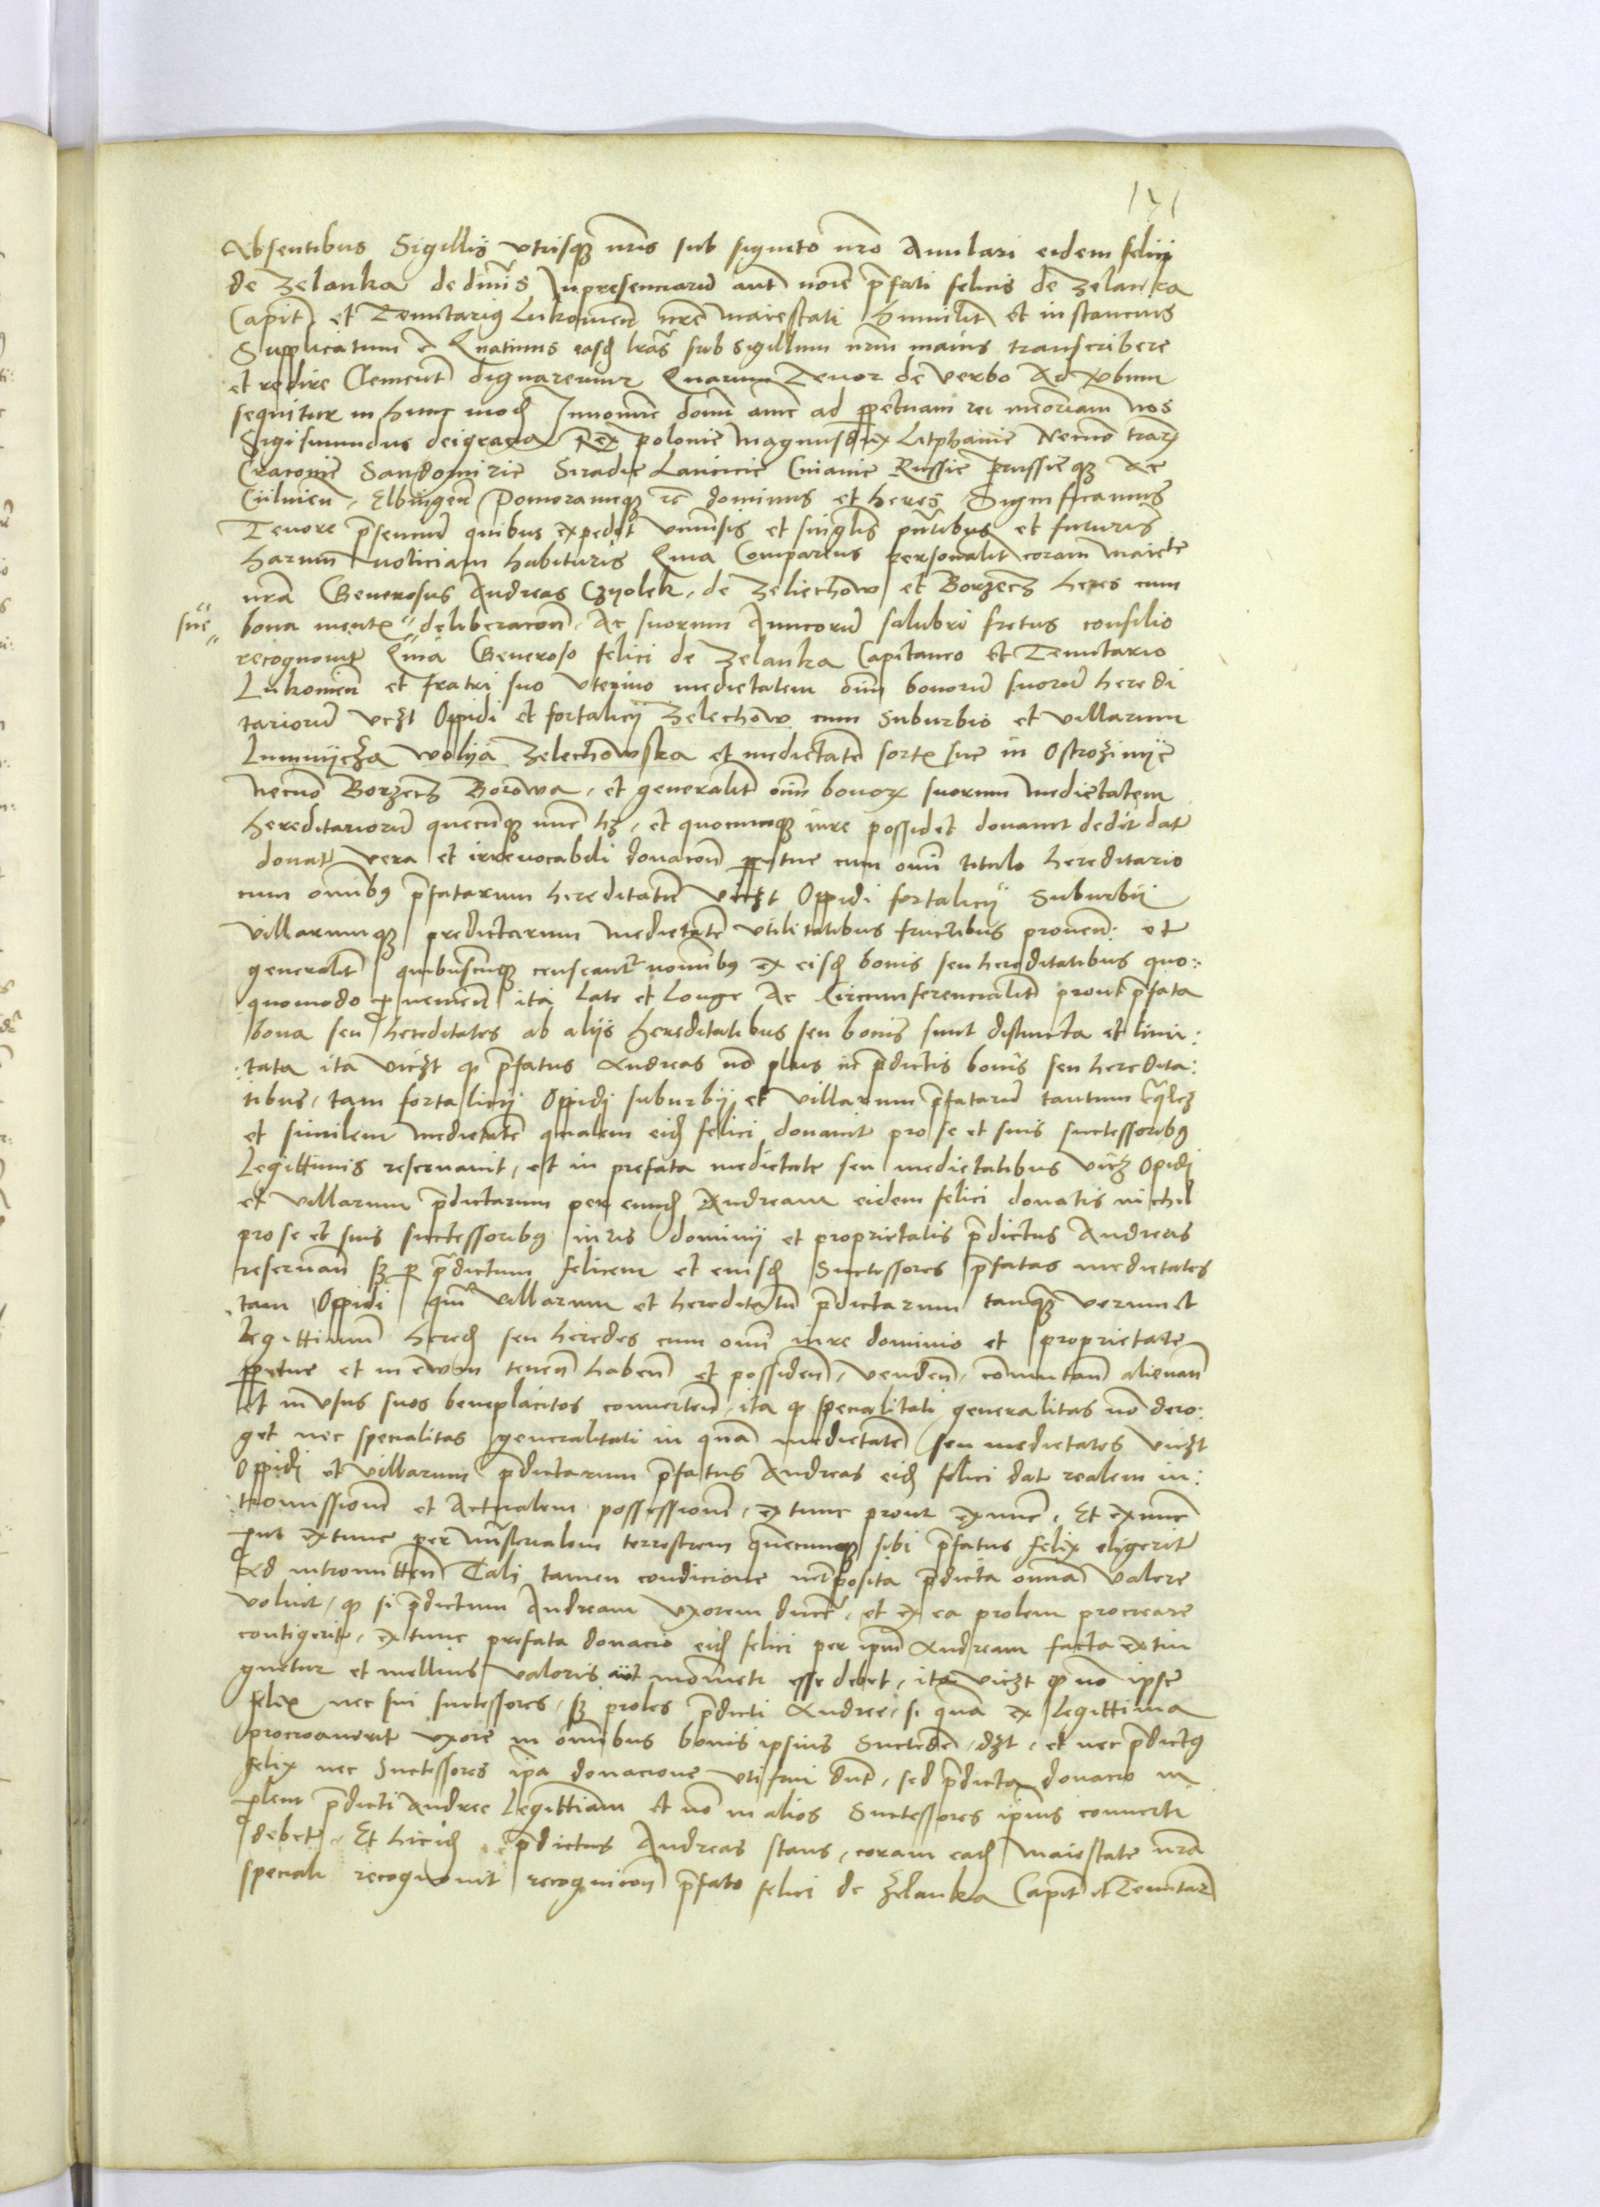 171
Absentibus Sigillis vtrisque nris sub signeto nro Annlari eidem felici
de Zelanka dedimus Inpresenciarum aut noie pfati felicis de Zelanka
Capit et Tenutarius Lukowien nre Maiestati humilit et instancius
Supplicatum e Quatinus easd lras sub sigillum nrm maius transcribere
et redire Clement dignaremur Quarum Tenor de verbo Ad verbum
sequitur in hunc mod In nomine domi ame ad ppetuam rei memoriam Nos
Sigismundus dei gracia Rex polonie Magnus dux Litphanie Necno trar
Cracouie Sandomirie Siradie Lancicie Cuiauie Russie prussieque Ac
Culmien Elbingen Pomoranieque re dominus et heres Significamus
Tenore psencium quibus expedit vniusis et singlis pntibus et futuris
harum noticiam habituris Quia Comparens personalit coram maieste
nra Generosus Andreas Czyolek de Zeliechow et Borzecz heres cum
sue
bona mente deliberacon Ac suorum Amicorum salubri fretus consilio
recognouit Quia Generoso felici de Zelanka Capitaneo Et Tenutario
Lukowien et fratri suo vterino medietatem oim bonorum suorum heredi
tariorum vczt Oppidi et fortalicij Zelechow cum Suburbio et villarum
wolya Zelechowska et medietate sorte sue in Ostrozinye
Necno Borzecz Borowa et generalit oim bonor suorum Medietatem
hereditariorum quecunque nunc hz et quocumque iure possidet donauit dedit dat
donat vera et irreuocabili donacon ppetue cum omi titulo hereditario
cum omibus pfatarum hereditatum viczt Oppidi fortalicij Suburbii
villarumque predictarum Medietate vtilitatibus fructibus prouen et
generalit quibuscunque censeantur nomibus ex eisd bonis seu hereditatibus quo
quomodo puenien ita late et Longe Ac Circumferencialit prout pfata
bona seu hereditates ab aliis hereditatibus seu bonis sunt distincta et limi
tata ita viczt q pfatus Andreas no plus in pdictis bonis seu heredita
tibus tam fortalicij Oppidi suburbij et villarum pfatarum tantum
et similem Medietate qualem eid felici donauit pro se et suis successoribus
Legittimis reseruauit et in prefata medietate seu medietatibus vicz Opidi
et villarum pdictarum per eund Andream eidem felici donatis nichil
pro se et suis successoribus iuris dominij et proprietatis pdictus Andreas
reseruan sz p pdictum felicem et eiusd Successores pfatas medietates
tam Oppidi qm villarum et hereditatum pdictarum tanquam verum et
Legittimum hered seu heredes cum omi iure dominio et proprietate
ppetue et in ewm tenen haben et possiden venden comutan alienan
et in vsus suos beneplacitos conuerten ita q specialitati generalitas no dero
get nec specialitas generalitati in qua medietate seu medietates viczt
Oppidi et villarum pdictarum pfatus Andreas eid felici dat realem in
tromissionem et Actualem possessionem ex tunc prout exnunc Et exnunc
put extunc per ministerialem terrestrem quecumque sibi pfatus felix eligerit
Ad intromitten Tali tamen condicione interposita pdicta omia valere
voluit q si pdictum Andream vxorem ducere et ex ea prolem procreare
contigerit ex tunc prefata donacio eid felici per ipm Andream facta extin
guetur et nullius valoris aut momenti esse debet ita viczt q no ipse
felix nec sui successores sz proles pdicti Andree si qua ex Legittima
procreauerit vxore in omibus bonis ipsius Succede dzt et nec pdictus
felix nec Successores ipa donacione vti frui dnt sed pdicta donacio in
plem pdicti Andree Legittimam et no in alios Successores ipius conuerti
debet Et hicid pdictus Andreas stans coram ead Maiestate nra
speciali recognouit recognicon pfato felici de Zelanka Capit et Tenutar